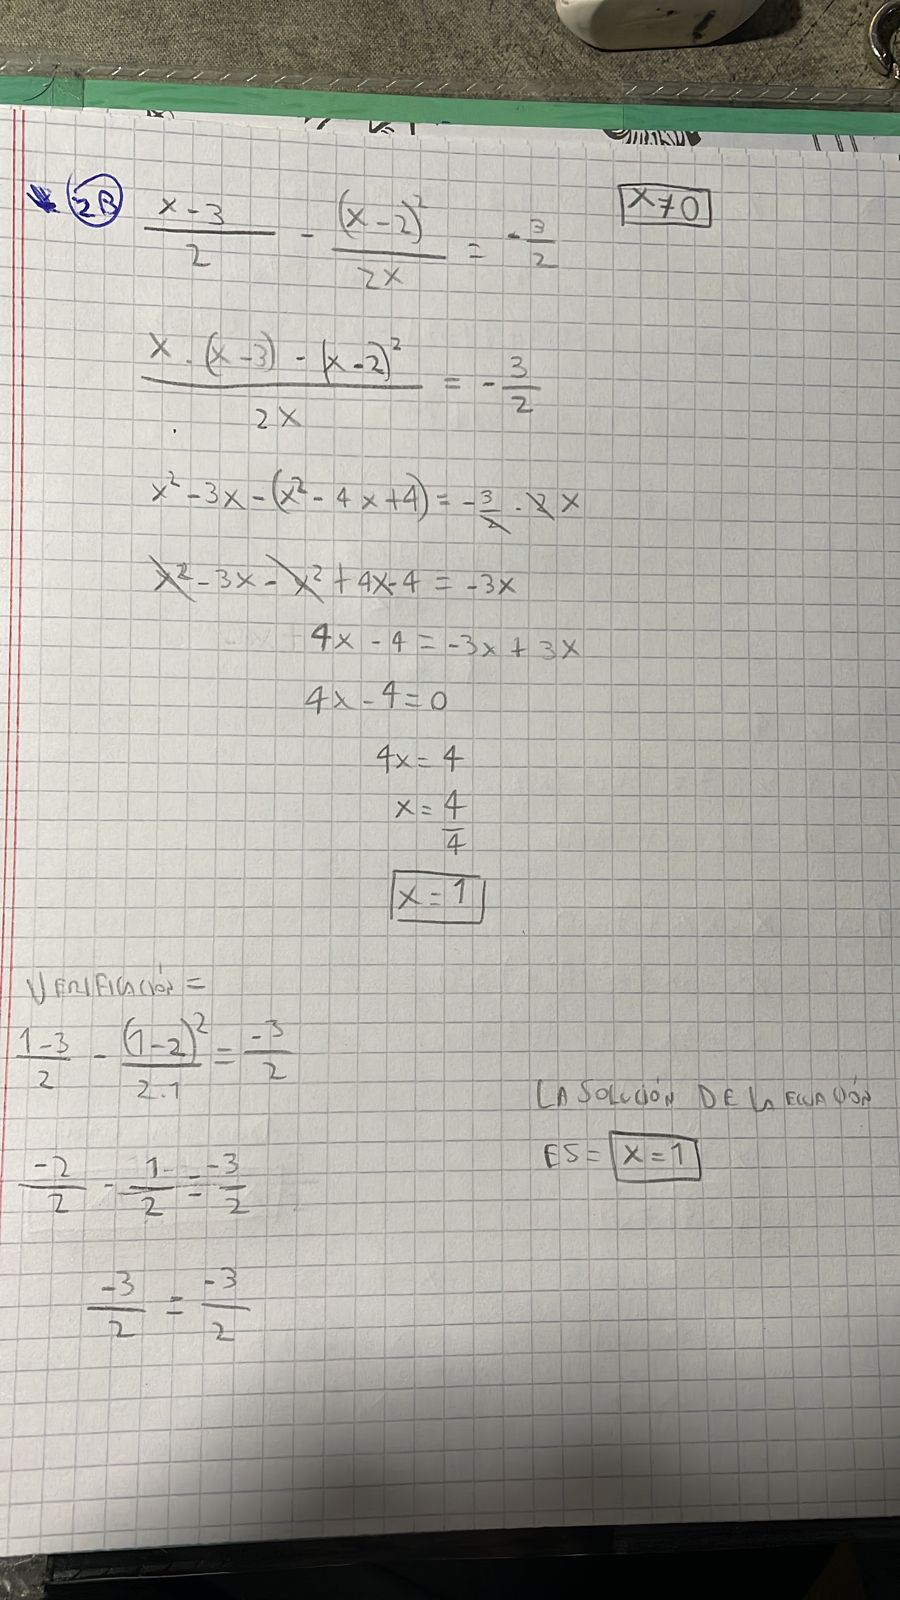 2B x-3/2 - (x-2)²/2x = -3/2 x≠0
x·(x-3) - (x-2)²/2x = -3/2
x² - 3x - (x² - 4x + 4) = -3/2 · 2x
x² - 3x - x² + 4x - 4 = -3x
4x - 4 = -3x + 3x
4x - 4 = 0
4x = 4
x = 4/4
x = 1
VERIFICACIÓN =
1-3/2 - (1-2)²/2.1 = -3/2
LA SOLUCIÓN DE LA ECUACIÓN
-2/2 - 1/2 = -3/2
ES = x = 1
-3/2 = -3/2